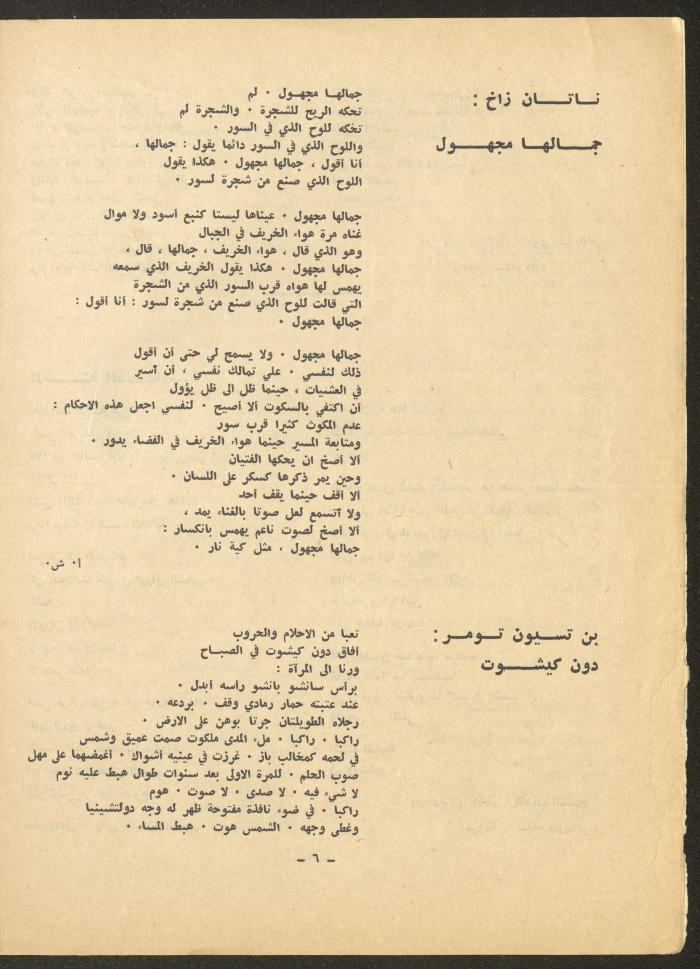 ناتان زاخ :
جمالها مجهول
جمالها مجهول . لم
تحكه الريح للشجرة . والشجرة لم
تحكه للوح الذي في السور .
واللوح الذي في السور دائما يقول : جمالها ،
أنا أقول ، جمالها مجهول . هكذا يقول
اللوح الذي صنع من شجرة لسور .
جمالها مجهول . عيناها ليستا كنبع أسود ولا موال
غناه مرة هواء الخريف في الجبال
وهو الذي قال ، هواء الخريف ، جمالها ، قال ،
جمالها مجهول . هكذا يقول الخريف الذي سمعه
يهمس لها هواه قرب السور الذي من الشجرة
التي قالت للوح الذي صنع من شجرة لسور : أنا أقول :
جمالها مجهول .
جمالها مجهول . ولا يسمح لي حتى أن أقول
ذلك لنفسي . علي تمالك نفسي ، أن أسير
في العشيات ، حينما ظل الى ظل يؤول
أن اكتفي بالسكوت ألا أصيح . لنفسي اجعل هذه الاحكام :
عدم المكوث كثيرا قرب سور
ومتابعة المسير حينما هواء الخريف في الفضاء يدور .
ألا أصخ ان يحكها الفتيان
وحين يمر ذكرها كسكر على اللسان .
ألا أقف حينما يقف أحد
ولا أتسمع لعل صوتا بالغناء يمد ،
ألا أصخ لصوت ناعم يهمس بانكسار :
جمالها مجهول ، مثل كية نار .
أ. ش.
بن تسيون تومر :
دون كيشوت
تعبا من الاحلام والحروب
أفاق دون كيشوت في الصباح
ورنا الى المرآة :
برأس سانشو بانشو رأسه أبدل .
عند عتبته حمار رمادي وقف . بردعه .
رجلاه الطويلتان جرتا بوهن على الارض .
راكبا . راكبا . ملء المدى ملكوت صمت عميق وشمس
في لحمه كمخالب باز . غرزت في عينيه أشواك . أغمضهما على مهل
صوب الحلم . للمرة الاولى بعد سنوات طوال هبط عليه نوم
لا شيء فيه . لا صدى . لا صوت . هوم
راكبا . في ضوء نافذة مفتوحة ظهر له وجه دولتشينيا
وغطى وجهه . الشمس هوت . هبط المساء .
– ٦ –